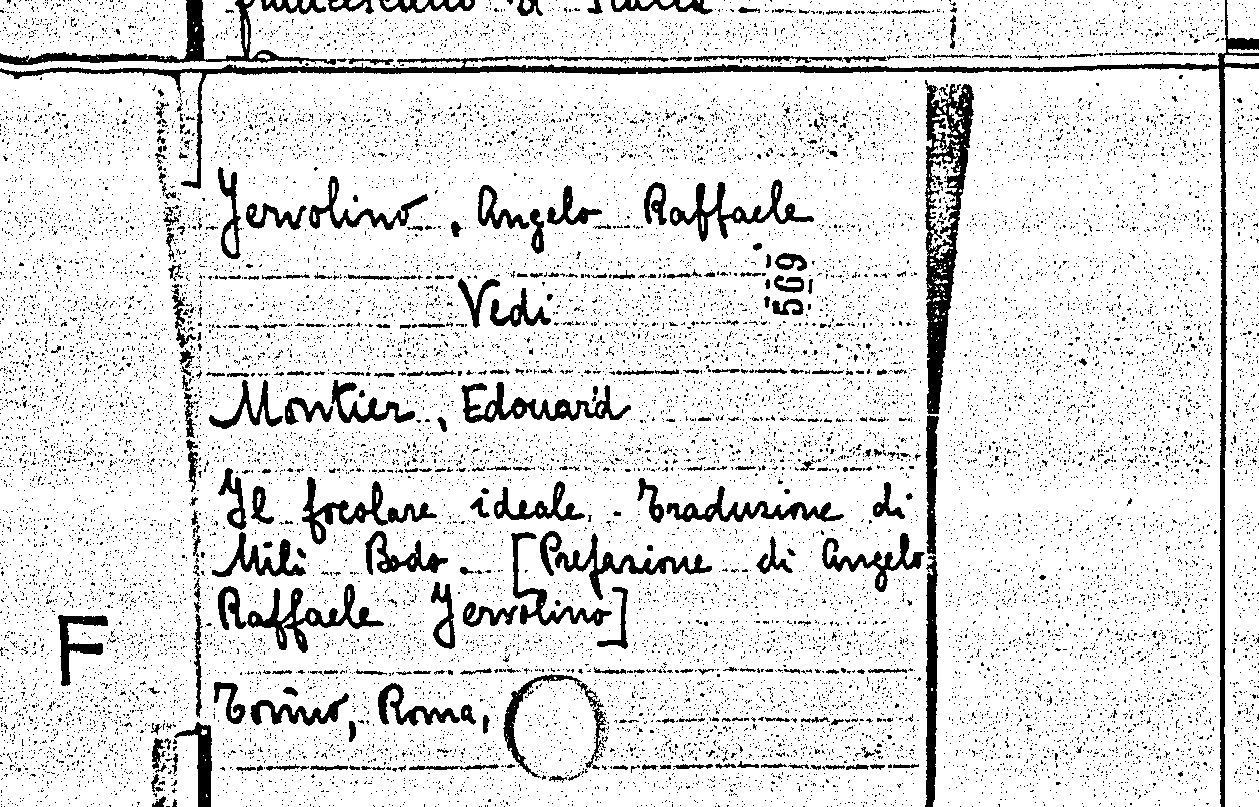 Jervolino, Angelo Raffaele
569
Vedi
Montier, Edouard
Il focolare ideale. - Traduzione di
Mili Bodo. [Prefazione di Angelo
Raffaele Jervolino]
F
Torino, Roma,